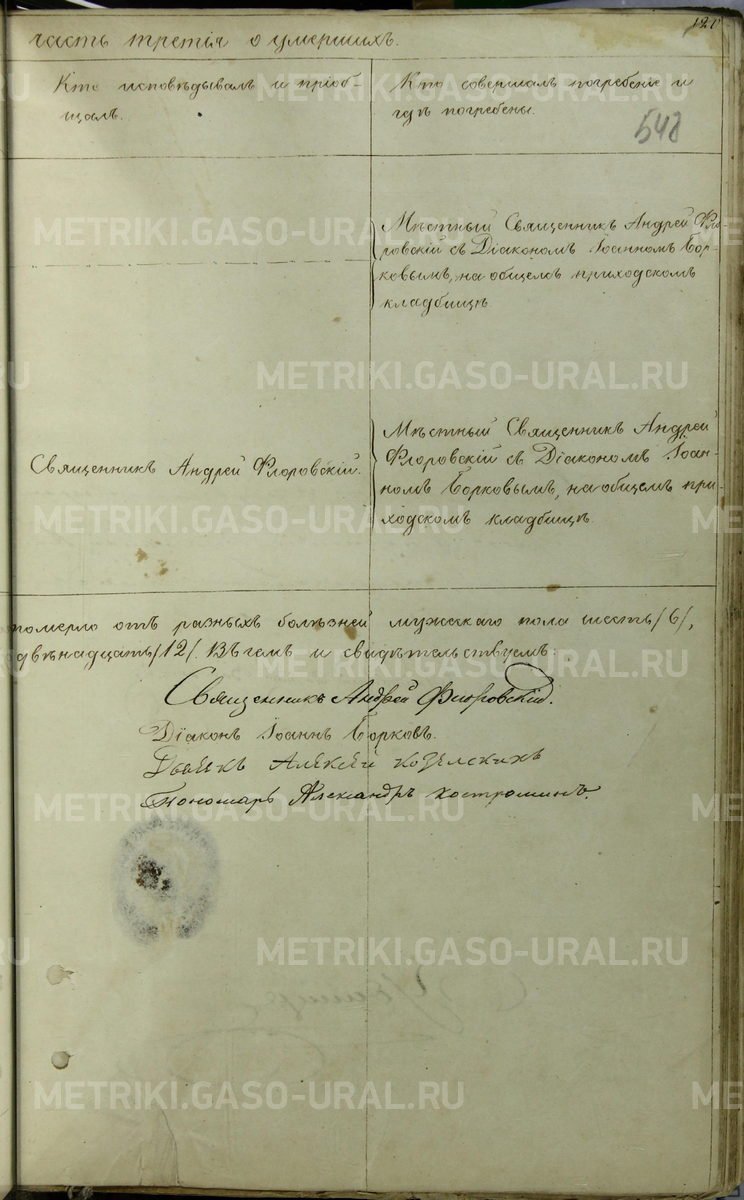 часть третія о умершихъ.
Кто исповѣдывалъ и пріоб-
щалъ.
Кто совершалъ погребеніе и
гдѣ погребены.
548
Мѣстный Священникъ Андрей Фло-
ровскій съ Діакономъ Іоанномъ Бор-
ковымъ, на общемъ приходскомъ
кладбищѣ
Священникъ Андрей Флоровскій.
Мѣстный Священникъ Андрей
Флоровскій съ Діакономъ Іоан-
номъ Борковымъ, на общемъ при-
ходскомъ кладбищѣ.
померло отъ разныхъ болѣзней мужескаго пола шесть /6/,
двѣнадцать /12/. Въ чемъ и свидѣтельствуемъ:
Священникъ Андрей Флоровскій.
Діаконъ Іоаннъ Борковъ.
Дьячекъ Алексей Козелскихъ
Пономарь Александръ Костроминъ.
METRIKI.GASO-URAL.RU